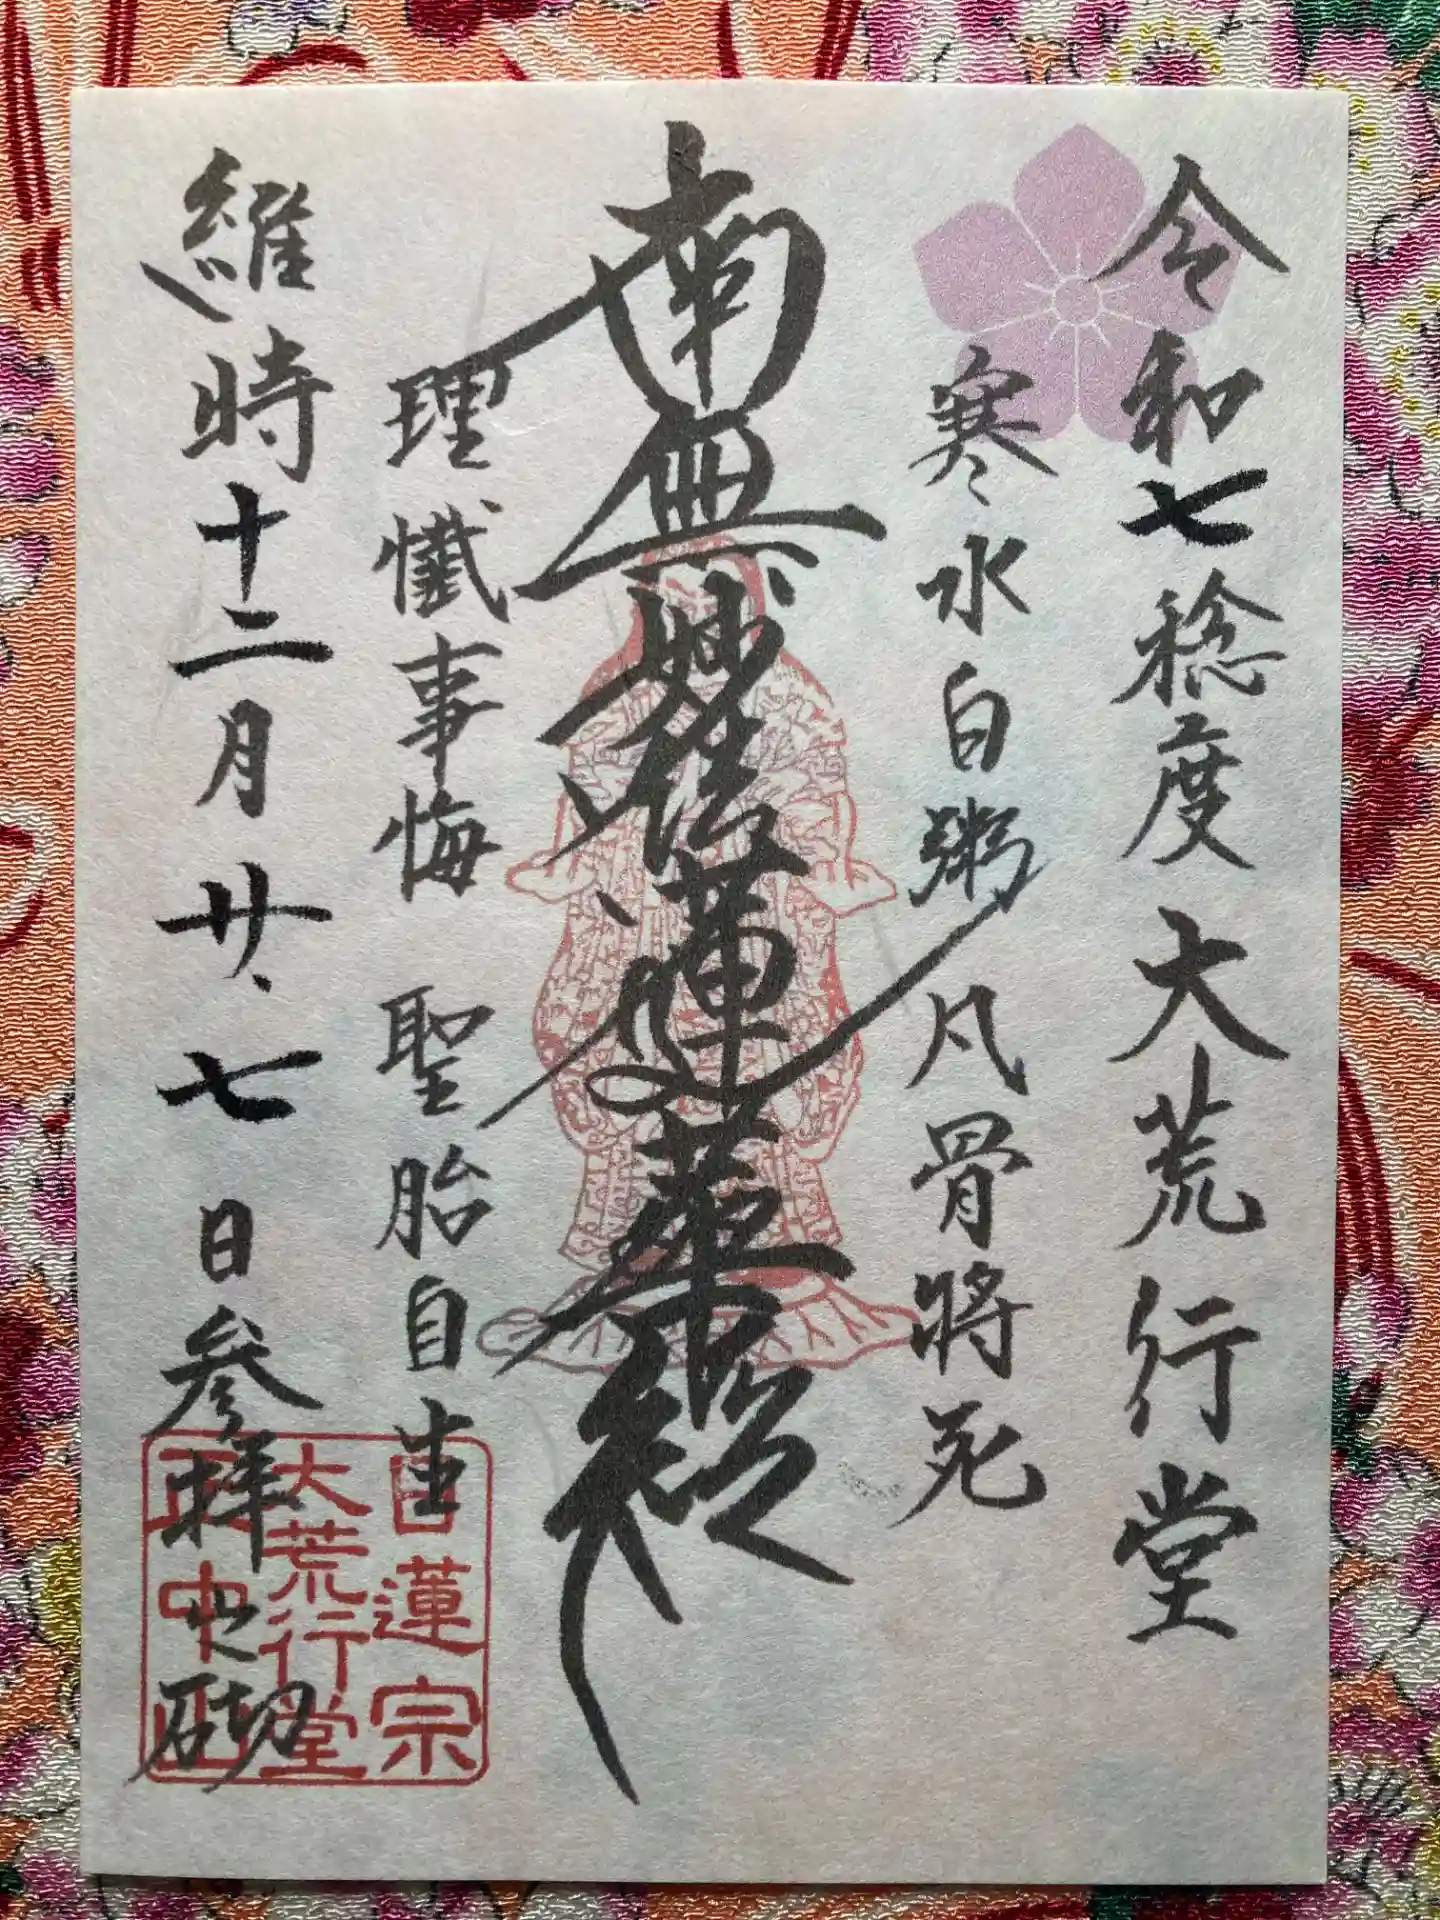 令和七稔度大荒行堂
寒水白粥凡骨将死
南無妙法蓮華経
理懺事悔 聖胎自生
維時十二月廿七日参拝之砌
日蓮宗
大荒行堂